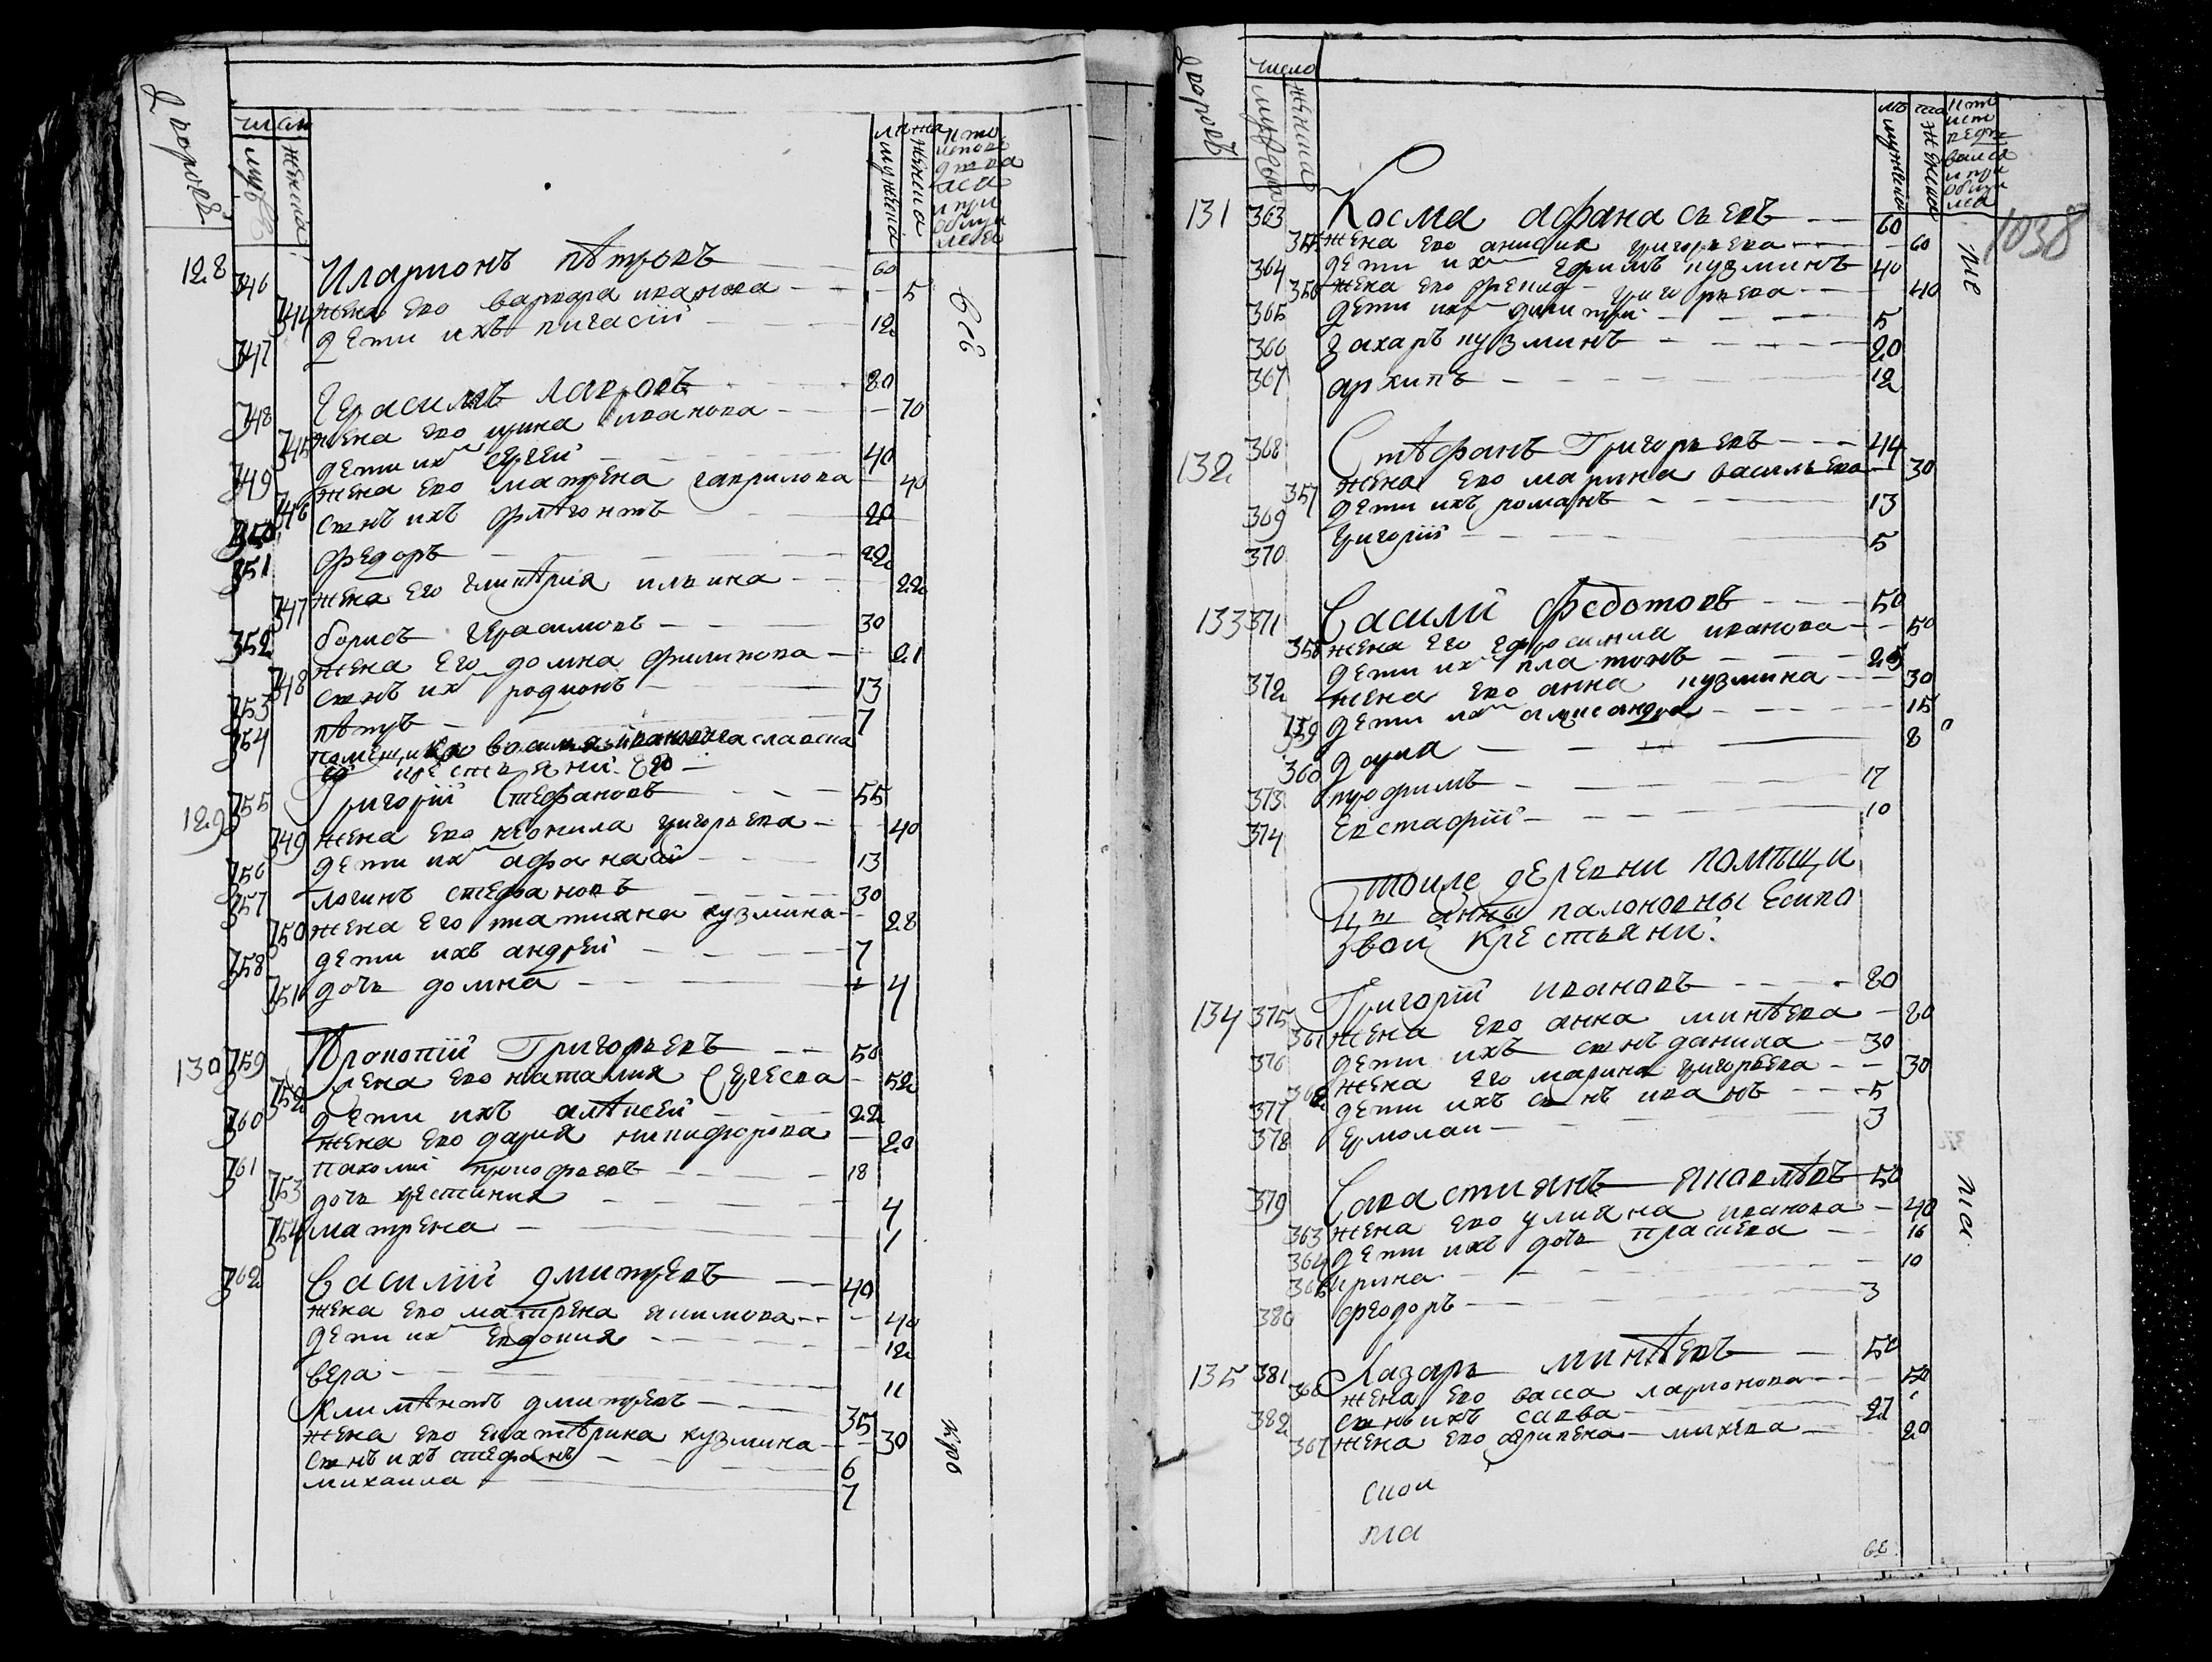 дворовъ
число
мужеска
женска
лѣта
мужеска
женска
128 346 Иларионъ пѣтровъ 60
344 жена ево варвара иванова 5
347 дети ихъ пигасiй 12
348 Герасимъ лавровъ 80
345 жена ево ирина иванова 70
349 дети их сергей 40
346 жена ево матрена гаврилова 40
350 сынъ ихъ флѣгонтъ 20
351 федоръ 22
347 жена его гликѣрия ильина 22
352 борисъ герасимовъ 30
348 жена его домна филипова 21
353 сынъ их родионъ 13
354 пѣтръ 7
помещика
крестьяни
129 355 Григорiй Стефановъ 55
349 жена ево неонила григорьева 40
356 дети их афанасiй 13
357 логинъ стефановъ 30
350 жена его татияна кузмина 28
358 дети ихъ андрей 7
351 дочь домна 4
130 359 Прокопiй Григорьевъ 50
352 жена ево наталия Сергеева 52
360 дети ихъ алѣксей 22
жена ево дария никифорова 20
361 пахомiй прокофьевъ 18
353 дочь христиния 4
354 матрена 1
362 Василiй дмитревъ 40
жена ево матрена якимова 40
дети их евдокия 12
вера 11
климѣнтъ дмитревъ 35
жена ево екатѣрина кузмина 30
сынъ ихъ стефанъ 6
михаила 7
всѣ
дворовъ
число
мужеска
женска
мужеска
женска
1038
131 363 Косма афанасьевъ 60
355 жена ево анисия григорьева 60
364 дети их ефимъ кузминъ 40
356 жена ево фения григорьева 40
365 дети их димитрiй 5
366 захаръ кузминъ 20
367 архипъ 12
132 368 Стѣфанъ Григорьевъ 44
357 жена ево марина васильева 30
369 дети ихъ романъ 13
370 григорiй 5
133 371 Василий федотовъ 50
358 жена его ефросиния иванова 50
372 дети их платонъ 25
жена ево анна кузмина 30
359 дети их александра 15
360 дария 8
373 трофимъ 17
374 евстафiй 10
тоиле деревни помѣщи
цы анны палоновны Есипо
вой крестьяни.
134 375 Григорiй ивановъ 80
361 жена ево анна минѣева 80
376 дети ихъ сынъ данила 30
362 жена его марина григорьева 30
377 дети ихъ сынъ иванъ 5
378 ермолаи 3
379 Савастиянъ яковлѣвъ 50
363 жена ево улияна иванова 40
364 дети ихъ дочь прасиева 16
365 ирина 10
380 феодоръ 3
135 381 Лазарь минѣевъ 50
366 жена ево васса ларионова 50
382 сынъ ихъ савва 27
367 жена ево агрипена михева 20